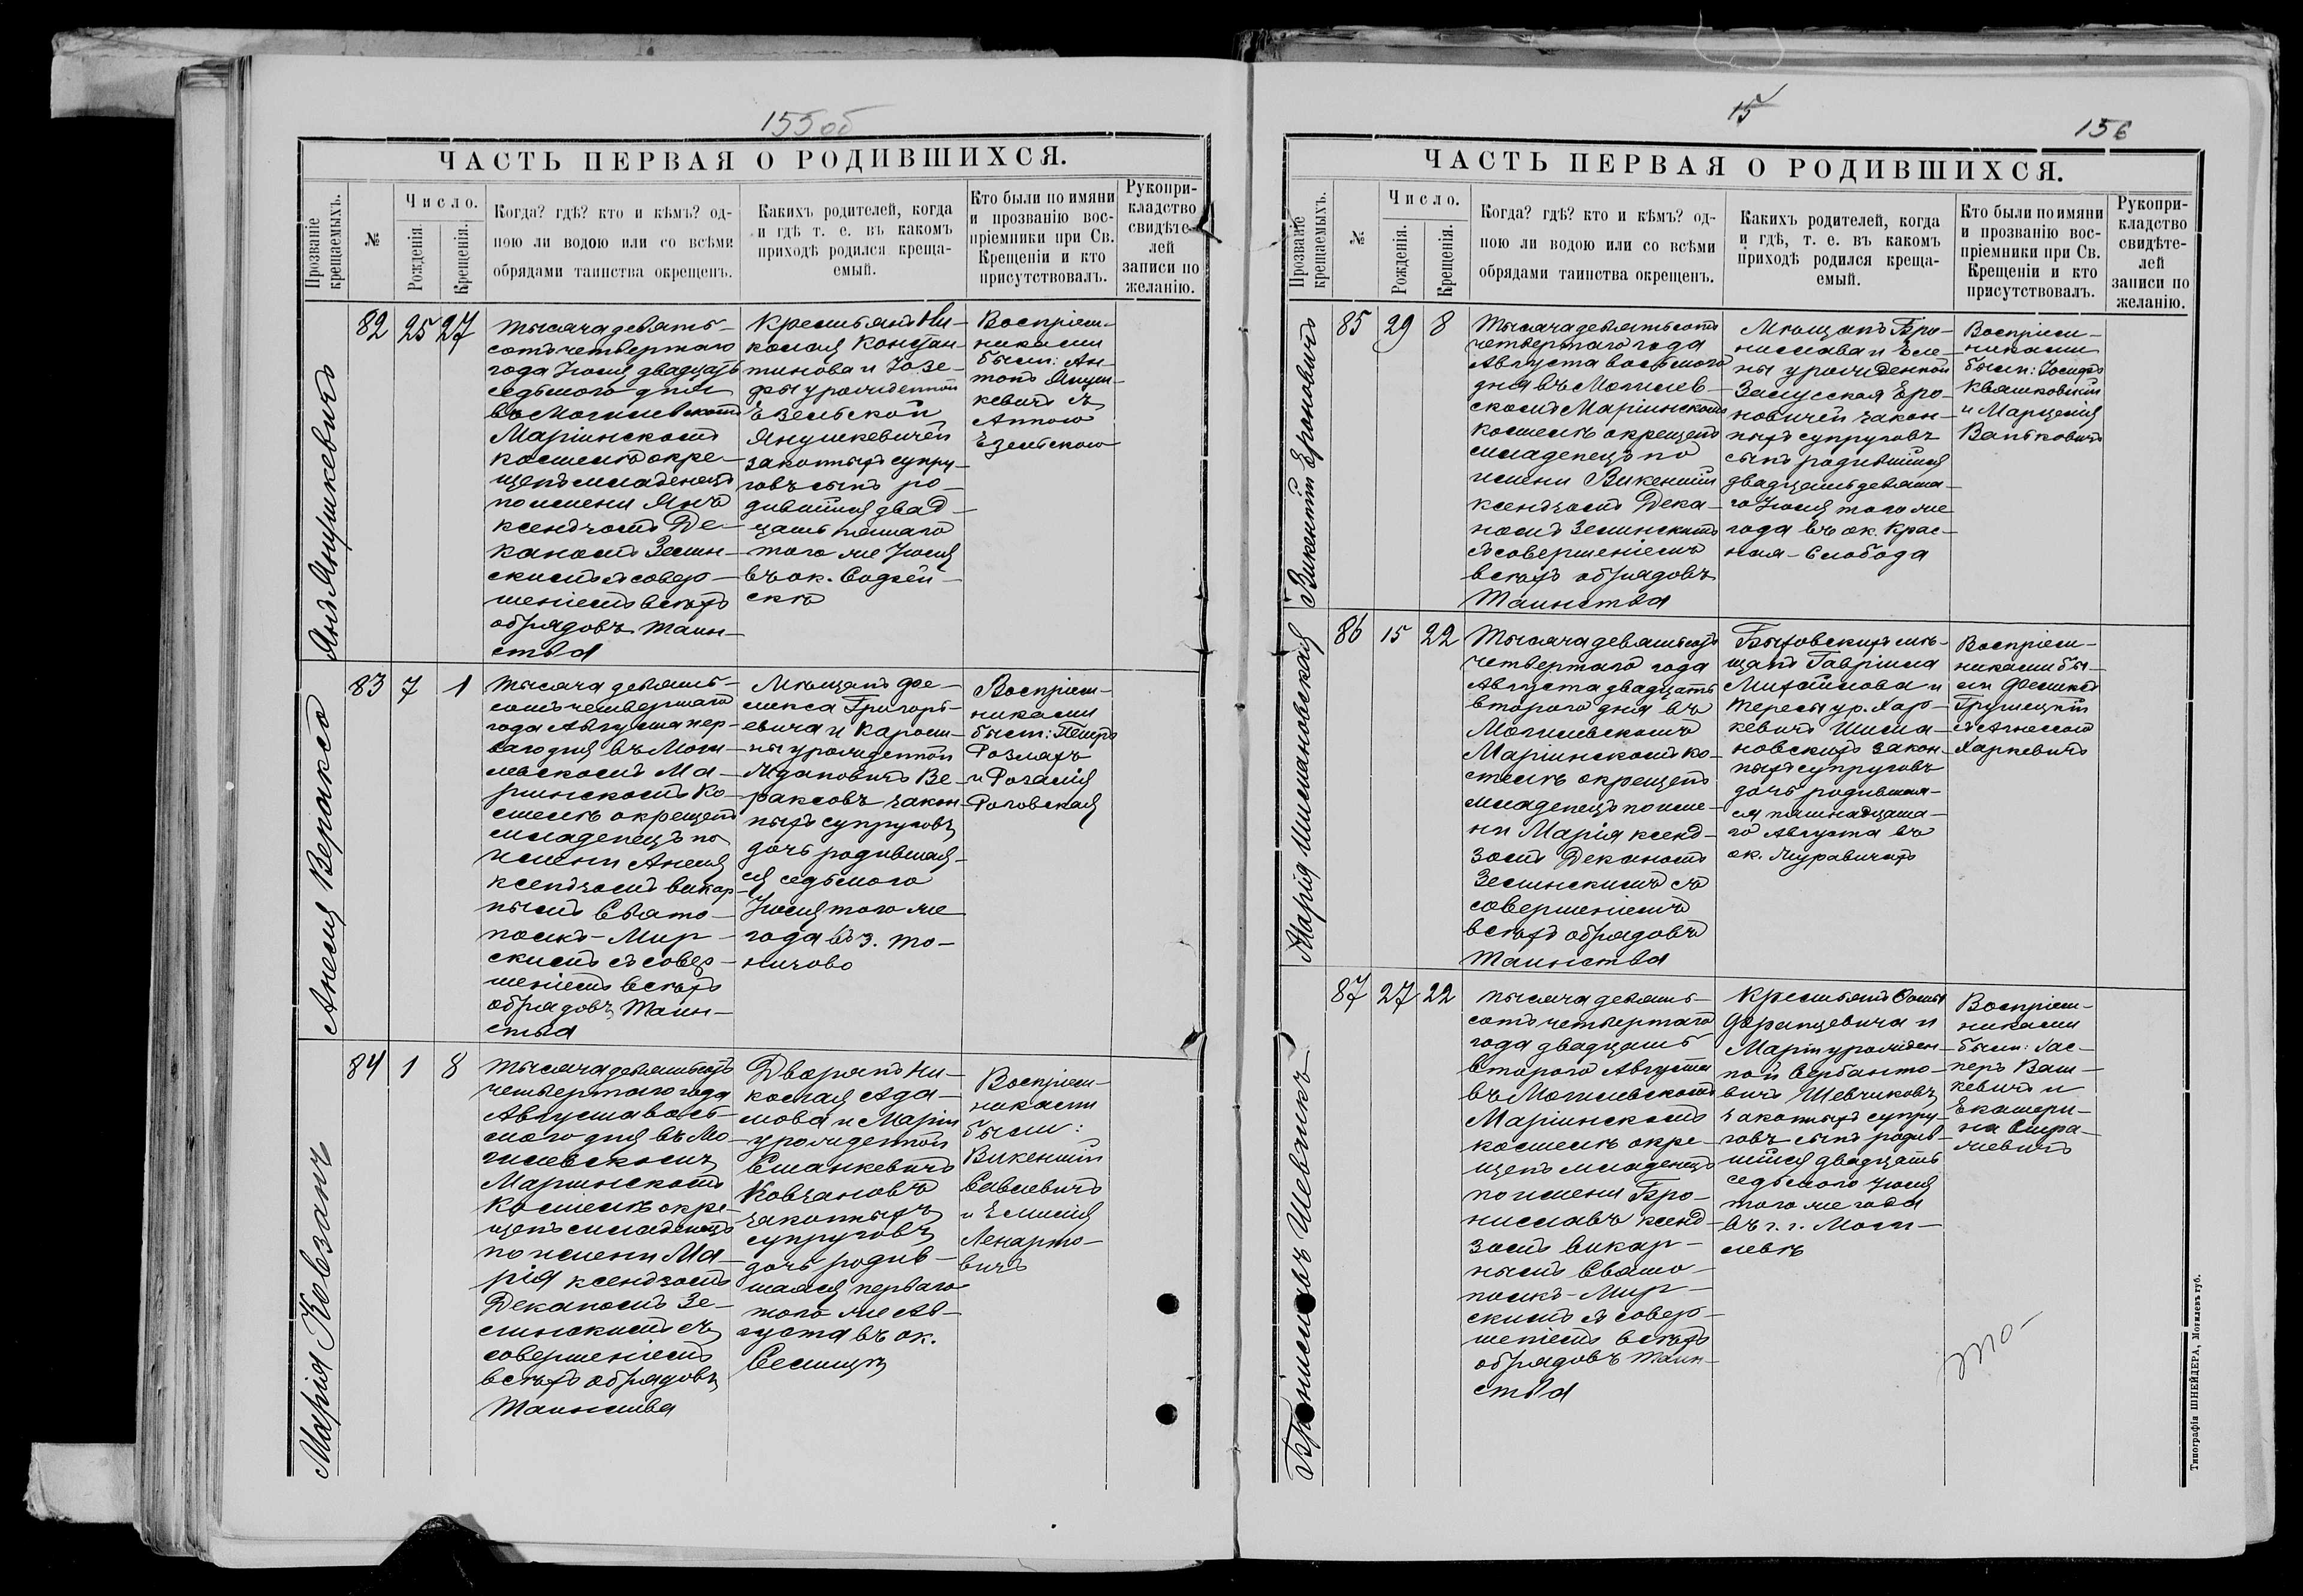 155об
ЧАСТЬ ПЕРВАЯ О РОДИВШИХСЯ.
Прозваніе крещаемыхъ.
№
Число.
Рожденія.
Крещенія.
Когда? гдѣ? кто и кѣмъ? од-
ною ли водою или со всѣми
обрядами таинства окрещенъ.
Какихъ родителей, когда
и гдѣ т. е. въ какомъ
приходѣ родился креща-
емый.
Кто были по имяни
и прозванію вос-
пріемники при Св.
Крещеніи и кто
присутствовалъ.
Рукопри-
кладство
свидѣте-
лей
записи по
желанію.
Янъ Янушкевичъ
82 25 27
Тысяча девять-
сотъ четвертаго
года Іюля двадцать
седьмого дня
въ Могилевскомъ
Маріинскомъ
костелѣ окре-
щенъ младенецъ
по имени Янъ
ксендзомъ Де-
каномъ Земин-
скимъ съ совер-
шеніемъ всѣхъ
обрядовъ Таин-
ства
Крестьянъ Ни-
колая Констан-
тинова и Юзе-
фы урожденной
Езельской
Янушкевичей
законныхъ супру-
говъ сынъ ро-
дившійся двад-
цать пятаго
того же Іюля
въ ок.
Воспріем-
никами
были: Ан-
тонъ Януш-
кевичъ съ
Анною
Езельскою
Анеля Вераксо
83 7 1
Тысяча девять-
сотъ четвертаго
года Августа пер-
ваго дня въ Моги-
левскомъ Ма-
ріинскомъ Ко-
стелѣ окрещенъ
младенецъ по
имени Анеля
ксендзомъ викар-
нымъ Свято-
полкъ-Мир-
скимъ съ совер-
шеніемъ всѣхъ
обрядовъ Таин-
ства
Мѣщанъ Фе-
ликса Григорь-
евича и Кароли-
ны урожденной
Адамовичъ Ве-
раксовъ закон-
ныхъ супруговъ
дочь родившая-
ся седьмого
Іюля того же
года въ з. То-
ничово
Воспріем-
никами
были: Петръ
Розмахъ
и Розалія
Роговская
Марія Ковзанъ
84 1 8
Тысяча девятьсотъ
четвертаго года
Августа вось-
мого дня въ Мо-
гилевскомъ
Маріинскомъ
Костелѣ окре-
щенъ младенецъ
по имени Ма-
рія ксендзомъ
Деканомъ Зе-
минскимъ съ
совершеніемъ
всѣхъ обрядовъ
Таинства
Дворянъ Ни-
колая Ада-
мова и Маріи
урожденной
Станкевичъ
Ковзановъ
законныхъ
супруговъ
дочь родив-
шаяся перваго
того же Ав-
густа въ ок.
Воспріем-
никами
были:
Викентій
Савлевичъ
и Емилія
Ленарто-
вичъ
15
156
ЧАСТЬ ПЕРВАЯ О РОДИВШИХСЯ.
Прозваніе крещаемыхъ.
№
Число.
Рожденія.
Крещенія.
Когда? гдѣ? кто и кѣмъ? од-
ною ли водою или со всѣми
обрядами таинства окрещенъ.
Какихъ родителей, когда
и гдѣ, т. е. въ какомъ
приходѣ родился креща-
емый.
Кто были по имяни
и прозванію вос-
пріемники при Св.
Крещеніи и кто
присутствовалъ.
Рукопри-
кладство
свидѣте-
лей
записи по
желанію.
Викентій Ероновичъ
85 29 8
Тысяча девятьсотъ
четвертаго года
Августа восьмого
дня въ Могилев-
скомъ Маріинскомъ
костелѣ окрещенъ
младенецъ по
имени Викентій
ксендзомъ Дека-
номъ Земинскимъ
съ совершеніемъ
всѣхъ обрядовъ
Таинства
Мѣщанъ Бро-
нислава и Еле-
ны урожденной
Залусская Еро-
новичей закон-
ныхъ супруговъ
сынъ родившійся
двадцать девята-
го Іюля того же
года въ ок. Крас-
ная-Слобода
Воспріем-
никами
были: Іосифъ
Квашковскій
и Марцелія
Ваньковичъ
Марія Шимановская
86 15 22
Тысяча девятьсотъ
четвертаго года
Августа двадцать
второго дня въ
Могилевскомъ
Маріинскомъ ко-
стелѣ окрещенъ
младенецъ по име-
ни Марія ксенд-
зомъ Деканомъ
Земинскимъ съ
совершеніемъ
всѣхъ обрядовъ
Таинства
Быховскихъ мѣ-
щанъ Гавріила
Михайлова и
Тересы ур. Хар-
кевичъ Шима-
новскихъ закон-
ныхъ супруговъ
дочь родившая-
ся пятнадцата-
го Августа въ
ок. Журавичахъ
Воспріем-
никами бы-
ли Феликсъ
Грушецкій
съ Агнессою
Харкевичъ
Брониславъ Шевчикъ
87 27 22
Тысяча девять-
сотъ четвертаго
года двадцать
второго Августа
въ Могилевскомъ
Маріинскомъ
костелѣ окре-
щенъ младенецъ
по имени Бро-
ниславъ ксенд-
зомъ викар-
нымъ Свято-
полкъ-Мир-
скимъ съ совер-
шеніемъ всѣхъ
обрядовъ Таин-
ства
Крестьянъ
Францевича и
Маріи урожден-
ной Сербанто-
вичъ Шевчиковъ
законныхъ супру-
говъ сынъ родив-
шійся двадцать
седьмого Іюля
того же года
въ г. г. Моги-
левѣ
Воспріем-
никами
были: Кас-
перъ Ваш-
кевичъ и
Екатери-
на Стра-
левичъ
Типографія ШНЕЙДЕРА, Могилевъ губ.